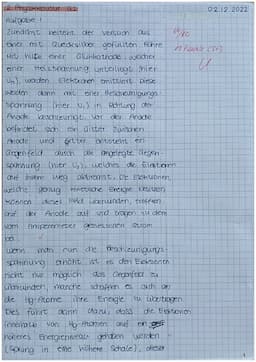 02.12.2022
Aufgabe 1
Zunächst besteht der Versuch aus
einer mit Quecksilber gefüllten Röhre
Mit Hilfe einer Glühkathode, welcher
einer Heizspannung unterliegt (hier
U₁), werden Elektronen emittiert. Diese
werden dann mit einer Beschleunigungs-
spannung (hier U₂) in Richtung der
Anode beschleunigt. Vor der Anode
befindet sich ein Gitter. Zwischen
Anode und Gitter entsteht ein
Gegenfeld durch die angelegte Gegen-
spannung (hier U₃), welches die Elektronen
auf ihrem Weg abbremst. Die Elektronen,
welche genug kinetische Energie besitzen
können dieses Feld überwinden, treffen
auf der Anode auf und tragen zu dem
vom Amperemeter gemessenen Strom
bei.
Wenn man nun die Beschleunigungs-
spannung erhöht ist es den Elektronen
nicht nur möglich das Gegenfeld zu
überwinden, manche schaffen es auch an
die Hg-Atome ihre Energie zu übertragen.
Dies führt dann dazu, dass die Elektronen
innerhalb von Hg-Atomen auf ein
höheres Energieniveau gehoben werden
(Sprung in eine höhere Schale), dieser